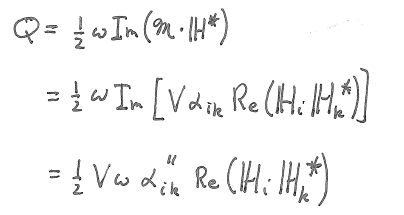 Q = 1/2 ω Im(𝔐 · ℍ*)
= 1/2 ω Im [V α_ik Re(ℍ_i ℍ_k*)]
= 1/2 V ω α''_ik Re(ℍ_i ℍ_k*)